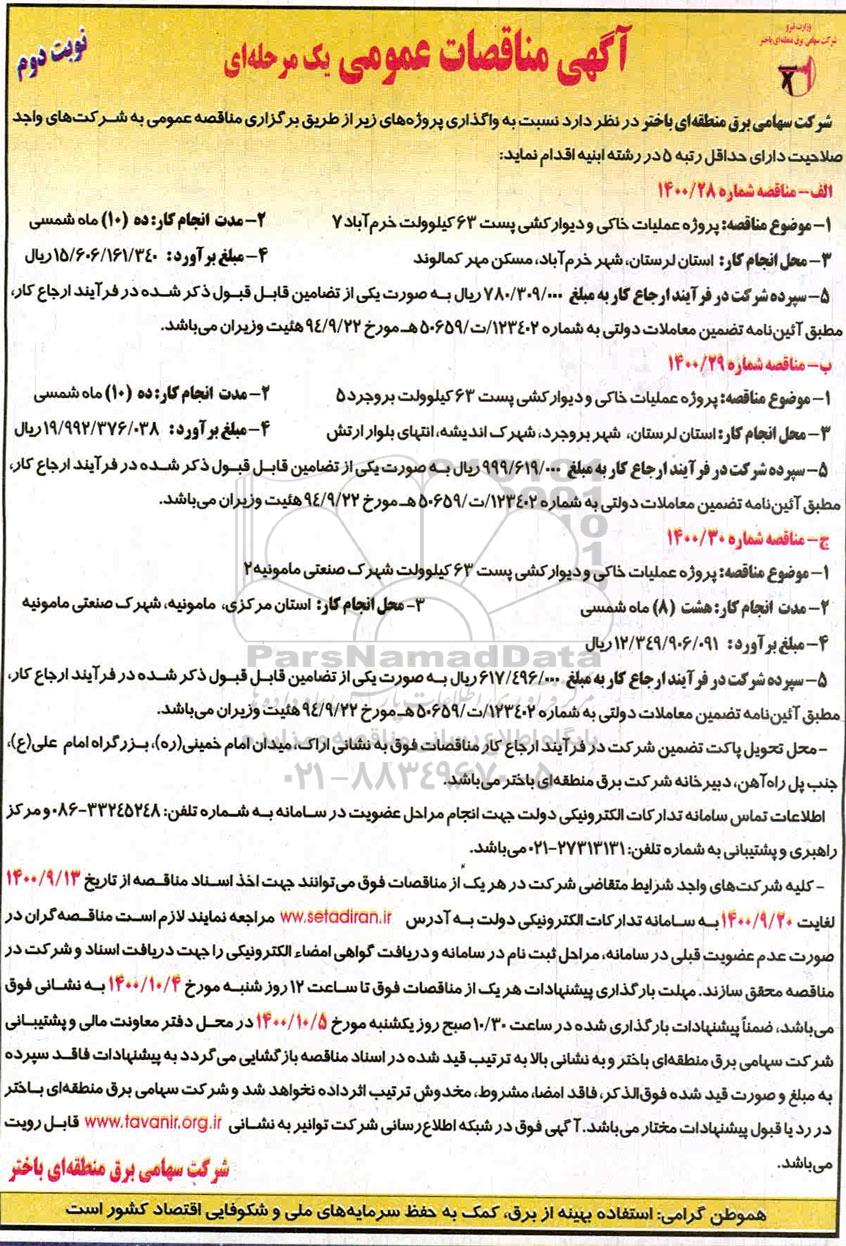 وزارت نیرو
شرکت سهامی برق منطقه‌ای باختر
آگهی مناقصات عمومی یک مرحله‌ای
نوبت دوم
شرکت سهامی برق منطقه‌ای باختر در نظر دارد نسبت به واگذاری پروژه‌های زیر از طریق برگزاری مناقصه عمومی به شرکت‌های واجد
صلاحیت دارای حداقل رتبه ۵ در رشته ابنیه اقدام نماید:
الف- مناقصه شماره ۱۴۰۰/۲۸
۱- موضوع مناقصه: پروژه عملیات خاکی و دیوارکشی پست ۶۳ کیلوولت خرم‌آباد ۷ ۲- مدت انجام کار: ده (۱۰) ماه شمسی
۳- محل انجام کار: استان لرستان، شهر خرم‌آباد، مسکن مهر کمالوند ۴- مبلغ برآورد: ۱۵/۶۰۶/۱۶۱/۳۴۰ ریال
۵- سپرده شرکت در فرآیند ارجاع کار به مبلغ ۷۸۰/۳۰۹/۰۰۰ ریال به صورت یکی از تضامین قابل قبول ذکر شده در فرآیند ارجاع کار،
مطابق آئین‌نامه تضمین معاملات دولتی به شماره ۱۲۳۴۰۲/ت/۵۰۶۵۹ هـ مورخ ۹۴/۹/۲۲ هئیت وزیران می‌باشد.
ب- مناقصه شماره ۱۴۰۰/۲۹
۱- موضوع مناقصه: پروژه عملیات خاکی و دیوارکشی پست ۶۳ کیلوولت بروجرد ۵ ۲- مدت انجام کار: ده (۱۰) ماه شمسی
۳- محل انجام کار: استان لرستان، شهر بروجرد، شهرک اندیشه، انتهای بلوار ارتش ۴- مبلغ برآورد: ۱۹/۹۹۲/۳۷۶/۰۳۸ ریال
۵- سپرده شرکت در فرآیند ارجاع کار به مبلغ ۹۹۹/۶۱۹/۰۰۰ ریال به صورت یکی از تضامین قابل قبول ذکر شده در فرآیند ارجاع کار،
مطبق آئین‌نامه تضمین معاملات دولتی به شماره ۱۲۳۴۰۲/ت/۵۰۶۵۹ هـ مورخ ۹۴/۹/۲۲ هئیت وزیران می‌باشد.
ج- مناقصه شماره ۱۴۰۰/۳۰
۱- موضوع مناقصه: پروژه عملیات خاکی و دیوارکشی پست ۶۳ کیلوولت شهرک صنعتی مامونیه ۲
۲- مدت انجام کار: هشت (۸) ماه شمسی ۳- محل انجام کار: استان مرکزی، مامونیه، شهرک صنعتی مامونیه
۴- مبلغ برآورد: ۱۲/۳۴۹/۹۰۶/۰۹۱ ریال
ParsNamadData
۵- سپرده شرکت در فرآیند ارجاع کار به مبلغ ۶۱۷/۴۹۶/۰۰۰ ریال به صورت یکی از تضامین قابل قبول ذکر شده در فرآیند ارجاع کار،
مطبق آئین‌نامه تضمین معاملات دولتی به شماره ۱۲۳۴۰۲/ت/۵۰۶۵۹ هـ مورخ ۹۴/۹/۲۲ هئیت وزیران می‌باشد.
- محل تحویل پاکت تضمین شرکت در فرآیند ارجاع کار مناقصات فوق به نشانی اراک، میدان امام خمینی(ره)، بزرگراه امام علی(ع)،
جنب پل راه‌آهن، دبیرخانه شرکت برق منطقه‌ای باختر می‌باشد.
۰۲۱-۸۸۳۴۹۶۷۰-۵
اطلاعات تماس سامانه تدارکات الکترونیکی دولت جهت انجام مراحل عضویت در سامانه به شماره تلفن: ۳۳۲۴۵۲۴۸-۰۸۶ و مرکز
راهبری و پشتیبانی به شماره تلفن: ۲۷۳۱۳۱۳۱-۰۲۱ می‌باشد.
- کلیه شرکت‌های واجد شرایط متقاضی شرکت در هر یک از مناقصات فوق می‌توانند جهت اخذ اسناد مناقصه از تاریخ ۱۴۰۰/۹/۱۳
لغایت ۱۴۰۰/۹/۲۰ به سامانه تدارکات الکترونیکی دولت به آدرس ww.setadiran.ir مراجعه نمایند لازم است مناقصه‌گران در
صورت عدم عضویت قبلی در سامانه، مراحل ثبت نام در سامانه و دریافت گواهی امضاء الکترونیکی را جهت دریافت اسناد و شرکت در
مناقصه محقق سازند. مهلت بارگذاری پیشنهادات هر یک از مناقصات فوق تا ساعت ۱۲ روز شنبه مورخ ۱۴۰۰/۱۰/۴ به نشانی فوق
می‌باشد، ضمناً پیشنهادات بارگذاری شده در ساعت ۱۰/۳۰ صبح روز یکشنبه مورخ ۱۴۰۰/۱۰/۵ در محل دفتر معاونت مالی و پشتیبانی
شرکت سهامی برق منطقه‌ای باختر و به نشانی بالا به ترتیب قید شده در اسناد مناقصه بازگشایی می‌گردد به پیشنهادات فاقد سپرده
به مبلغ و صورت قید شده فوق‌الذکر، فاقد امضا، مشروط، مخدوش ترتیب اثر داده نخواهد شد و شرکت سهامی برق منطقه‌ای باختر
در رد یا قبول پیشنهادات مختار می‌باشد. آگهی فوق در شبکه اطلاع‌رسانی شرکت توانیر به نشانی www.tavanir.org.ir قابل رویت
می‌باشد.
شرکت سهامی برق منطقه‌ای باختر
هموطن گرامی: استفاده بهینه از برق، کمک به حفظ سرمایه‌های ملی و شکوفایی اقتصاد کشور است